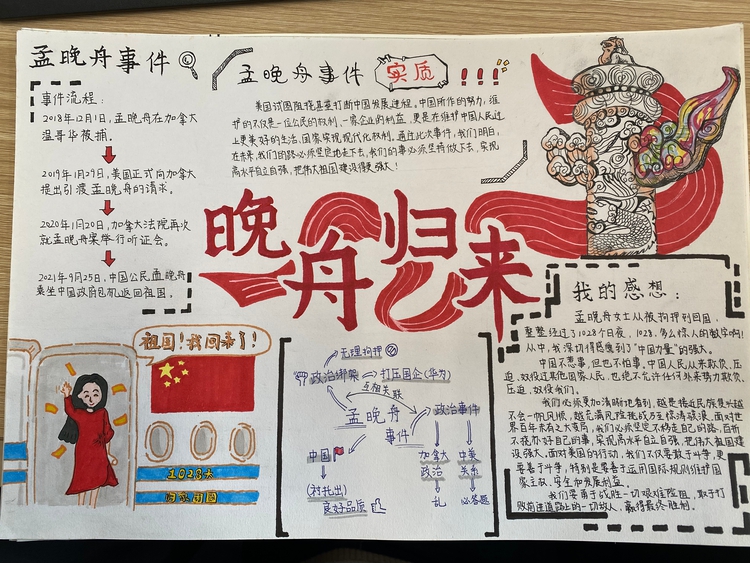 孟晚舟事件
事件流程：
2018年12月1日，孟晚舟在加拿大
温哥华被捕。
2019年1月29日，美国正式向加拿大
提出引渡孟晚舟的请求。
2020年1月20日，加拿大法院再次
就孟晚舟案举行听证会。
2021年9月25日，中国公民孟晚舟
乘坐中国政府包机返回祖国。
孟晚舟事件 实质 !!!
美国试图阻挠甚至打断中国发展进程。中国所作的努力，维
护的不仅是一位公民的权利，一家企业的权利，更是在维护中国人民过
上更美好的生活、国家实现现代化权利。通过此次事件，我们明白，
在未来，我们的路必须坚定地走下去，我们的事必须坚持做下去，实现
高水平自立自强，把伟大祖国建设得更强大！
晚舟归来
祖国！我回来了！
1028天
归来团圆
无理拘押
政治绑架 打压国企（华为）
互相关联
孟晚舟
事件
政治事件
中国
（衬托出）
良好品质
加拿大
政治
乱
中美
关系
必答题
我的感想：
孟晚舟女士从被拘押到回国，
整整经过了1028个日夜。1028，多么惊人的数字啊！
从中，我深切得感受到了“中国力量”的强大。
中国不惹事，但也不怕事，中国人民从来欺负、压
迫、奴役过其他国家人民，也绝不允许任何外来势力欺负、
压迫、奴役我们。
我们必须更加清晰地看到，越是接近民族复兴越
不会一帆风顺，越充满风险挑战乃至惊涛骇浪。面对世
界百年未有之大变局，我们必须坚定不移走自己的路，百折
不挠办好自己的事，实现高水平自立自强，把伟大祖国建
设强大。面对美国的行动，我们不仅要敢于斗争，更
要善于斗争，特别是要善于运用国际规则维护国
家主权、安全和发展利益。
我们要勇于战胜一切艰难险阻，敢于打
败前进道路上的一切敌人，赢得最终胜利。